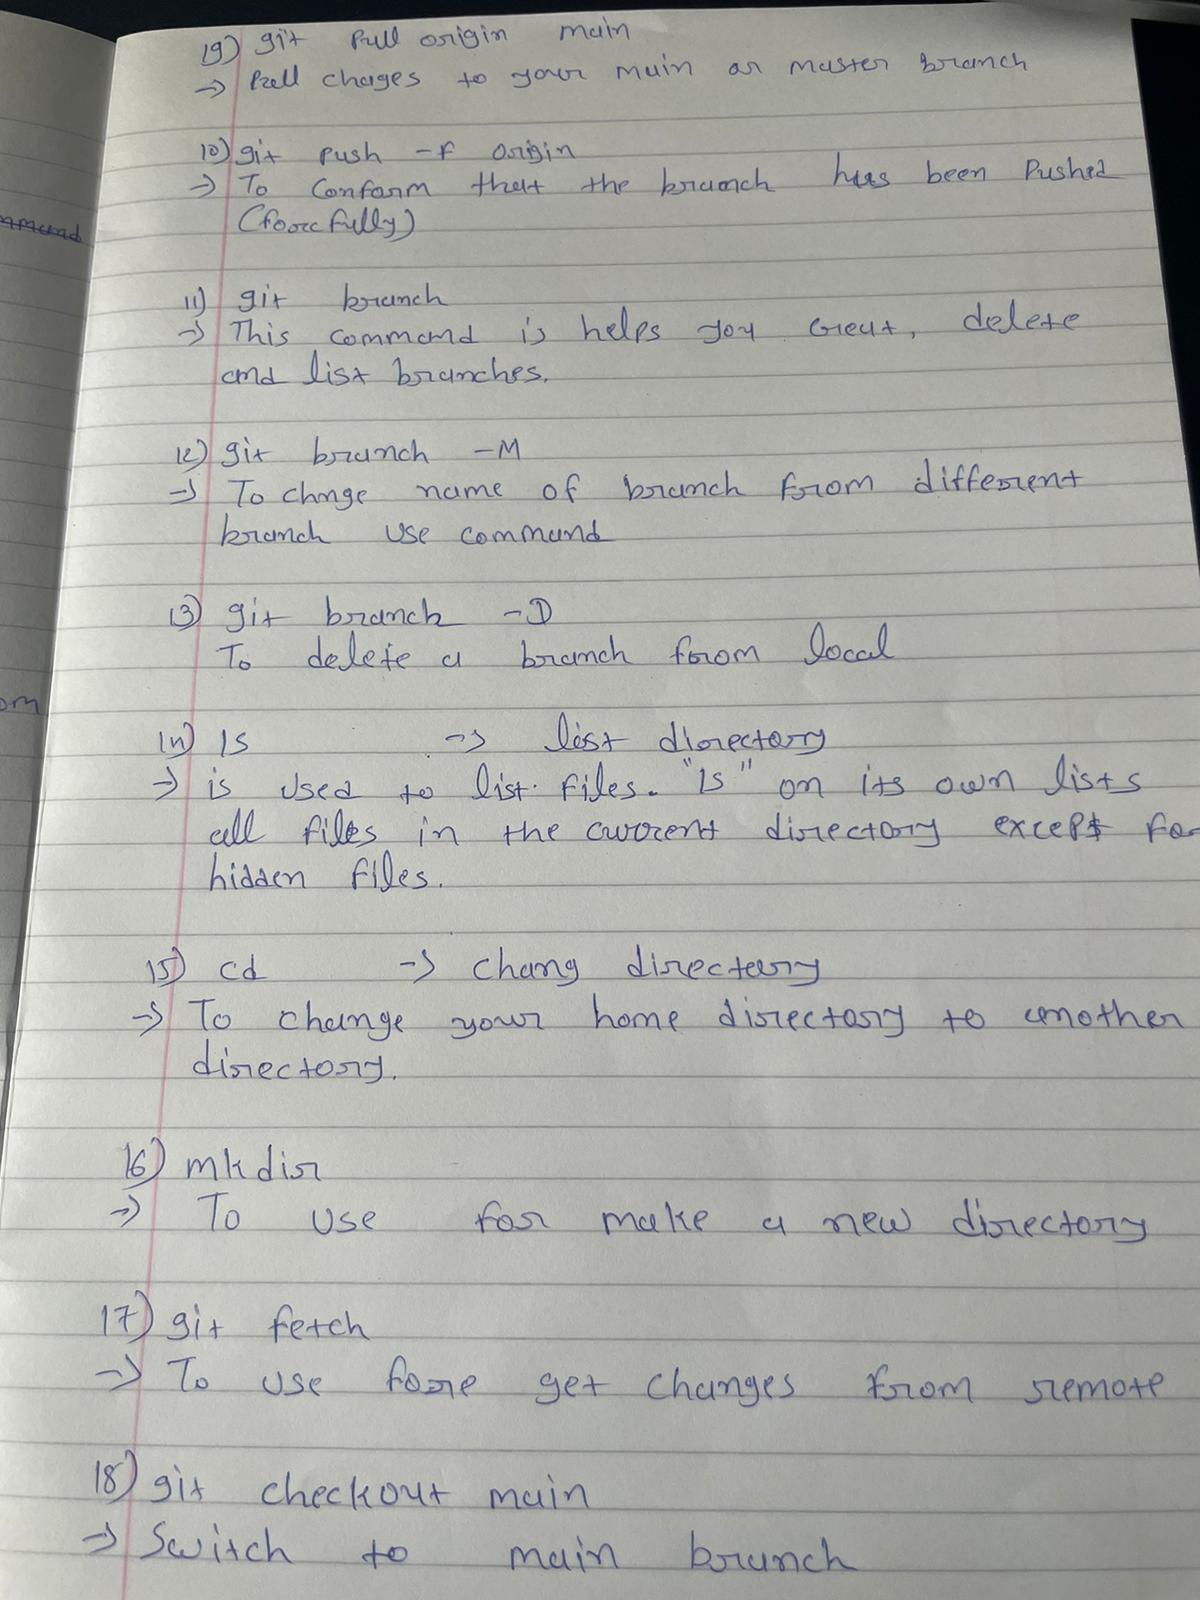 19) git Pull origin main
→ Pull chages to your main or master branch
10) git push -f origin
→ To Conform that the branch has been Pushed
(forcefully)
11) git branch
→ This command is helps you Creat, delete
and list branches.
12) git branch -M
→ To chnge name of branch from different
branch use command
13) git branch -D
To delete a branch from local
14) ls → list directory
→ is used to list files. "ls" on its own lists
all files in the current directory except for
hidden files.
15) cd → chang directory
→ To change your home directory to another
directory.
16) mkdir
→ To use for make a new directory
17) git fetch
→ To use fore get changes from remote
18) git checkout main
→ Switch to main branch